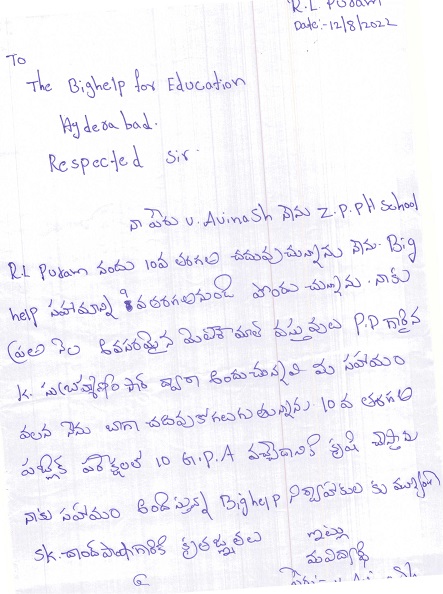 R.L. Puram
Date:-12/8/2022
To
The Bighelp for Education
Hyderabad.
Respected Sir.
నా పేరు V. Avinash నేను Z.P.P.H School
R.L Puram నందు 10వ తరగతి చదువుచున్నాను నేను. Big
help సహాయాన్ని వతరగతినుండి పొందు చున్నాను. నాకు
ప్రతి నెల అవసరమైన మెటీరియల్ వస్తువులు P.D గారైన
K. సుబ్రహ్మణ్యం సార్ ద్వారా అందుచున్నవి మీ సహాయం
వలన నేను బాగా చదువుకోగలుగుతున్నాను. 10వ తరగతి
పబ్లిక్ పరీక్షలలో 10 G.P.A వచ్చేదానికి కృషి చేస్తాను
నాకు సహాయం అందిస్తున్న Bighelp నిర్వాహకుల కు ముఖ్యంగా
SK. చాంద్ పాషాగారికి కృతజ్ఞతలు
ఇట్లు
మీవిద్యార్థి